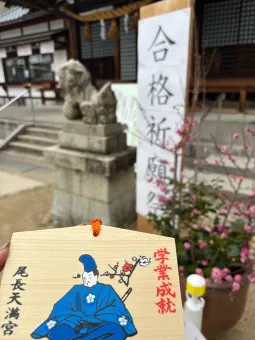 合格祈願祭
学業成就
尾長天満宮